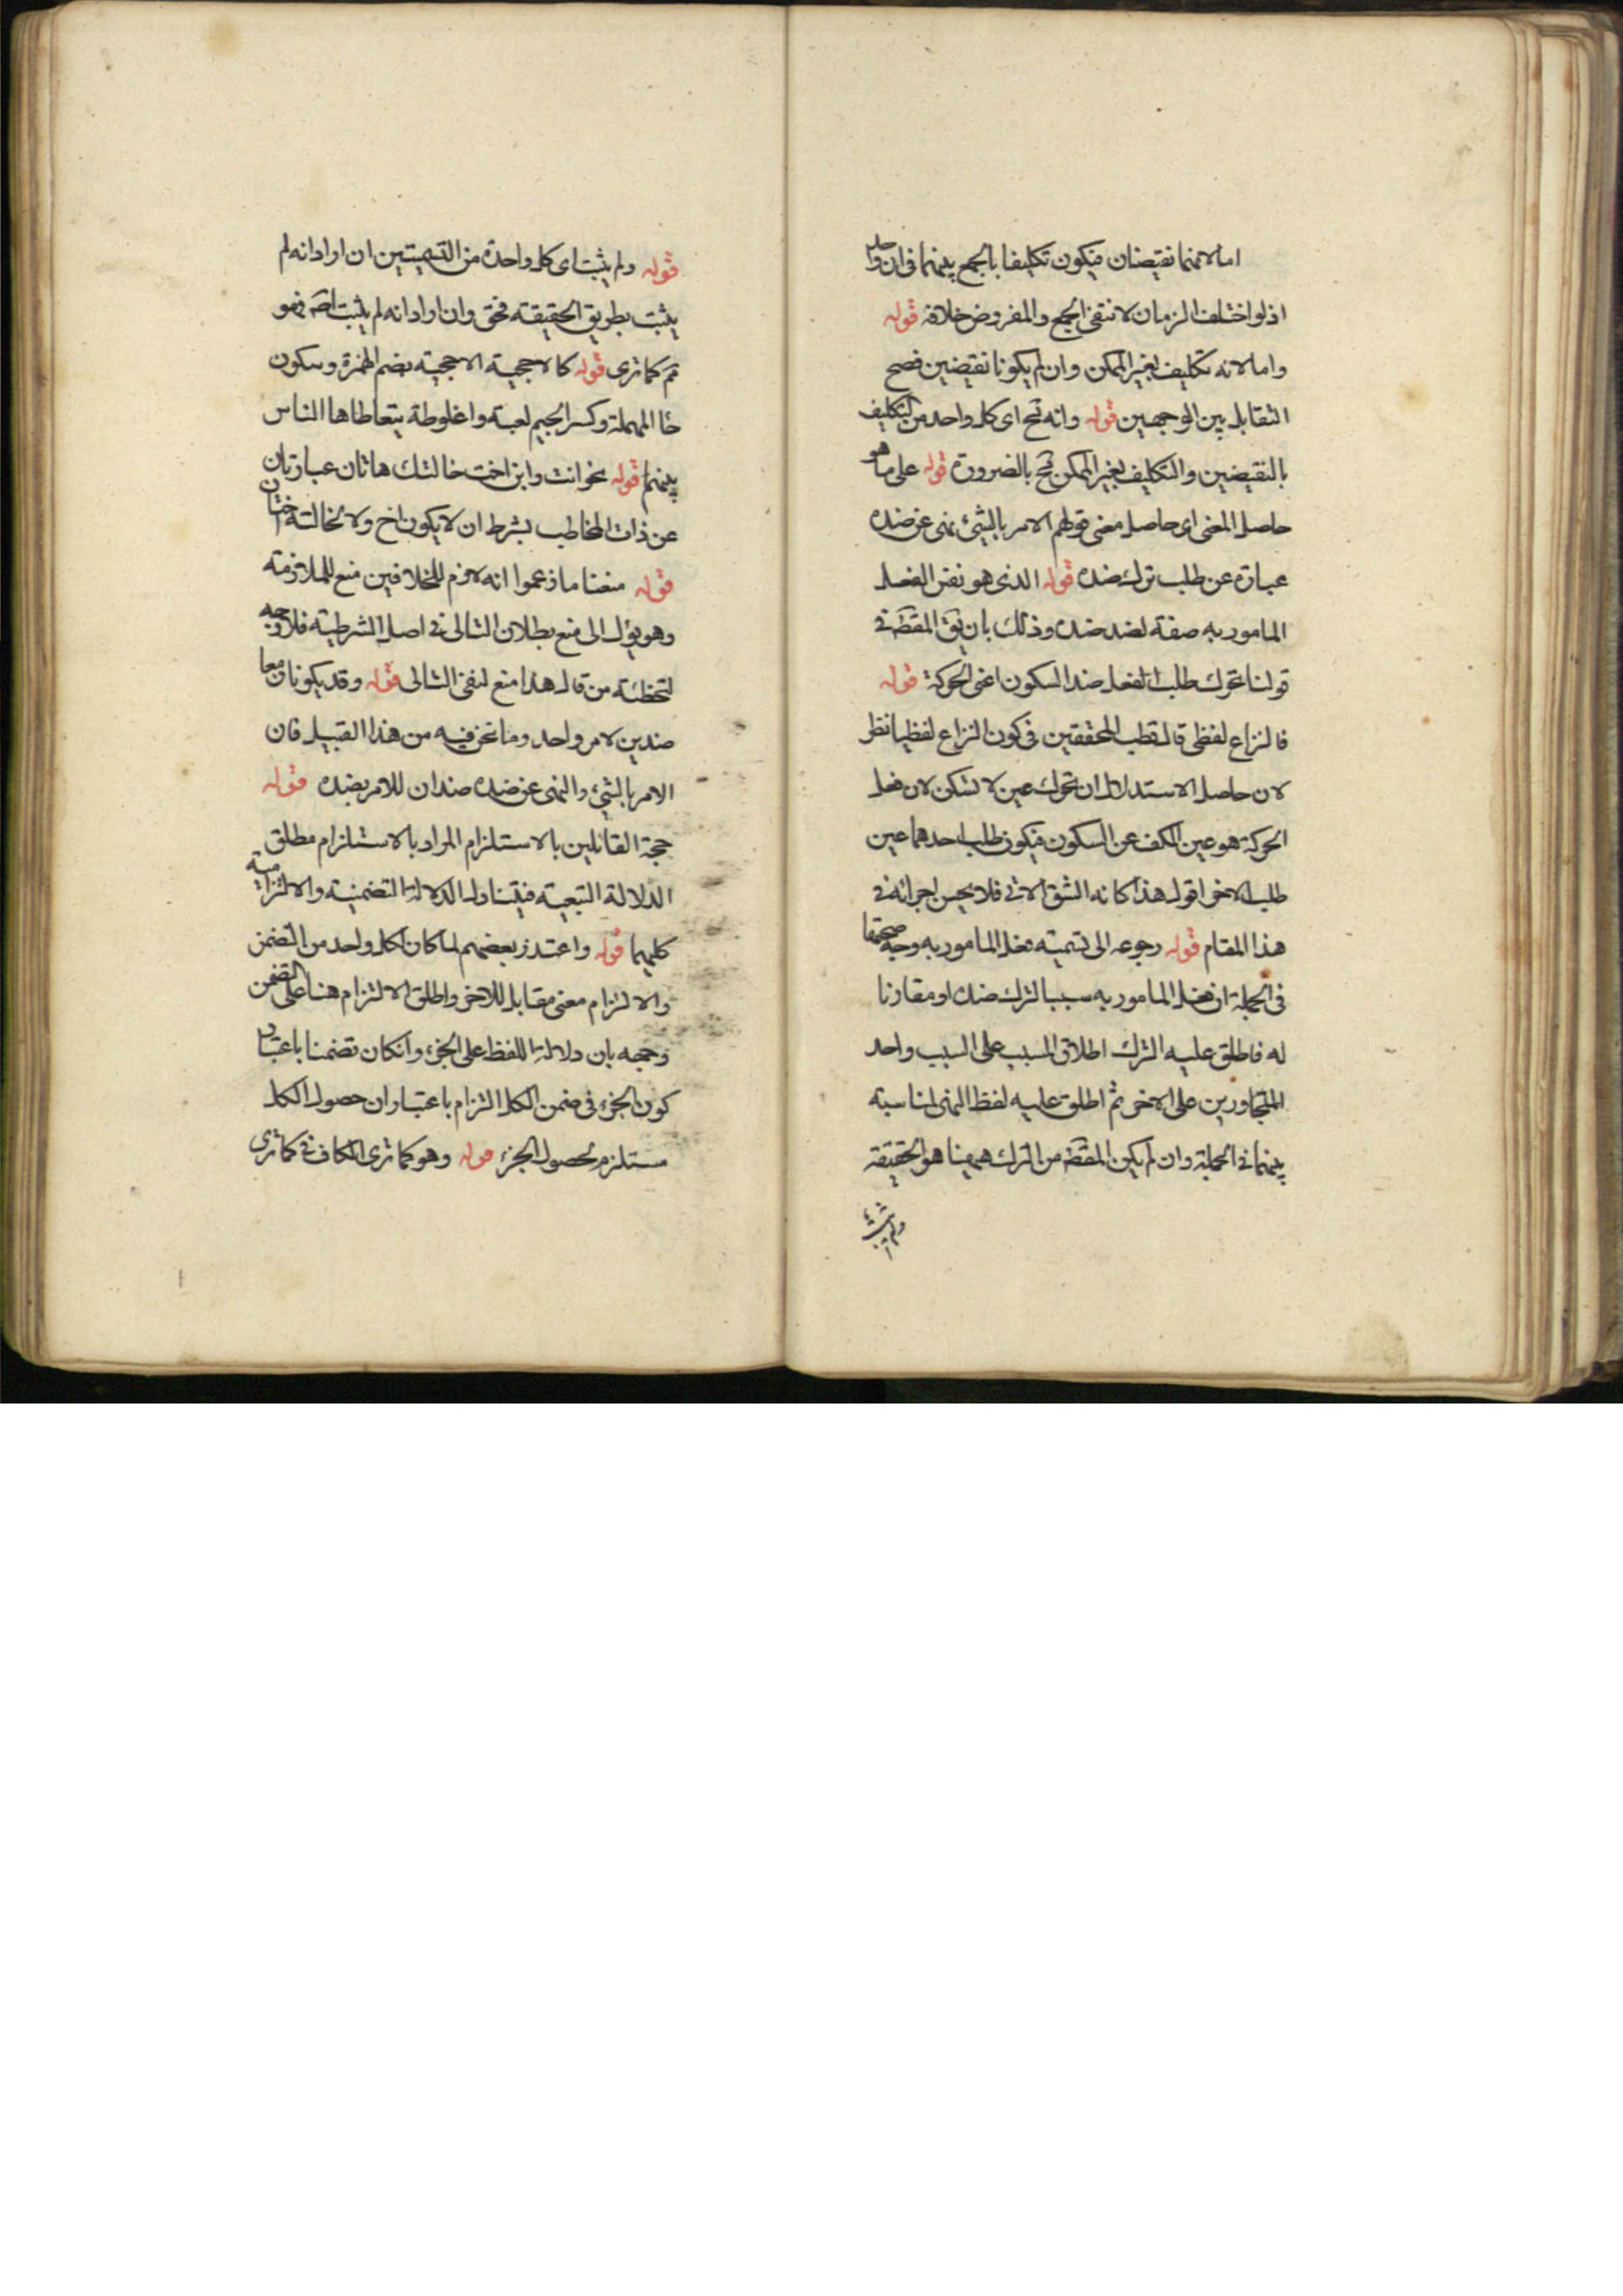 اما لانهما نقيضان فيكون تكليفا بالجمع بينهما فى ان واحد
اذ لو اختلف الزمان لانتفى الجمع والمفروض خلافه قوله
واما لانه تكليف بغير الممكن وان لم يكونا نقيضين فصح
التقابل بين الوجهين قوله وانه مح اى كل واحد من التكليف
بالنقيضين والتكليف بغير الممكن مح بالضرورة قوله على ما هو
حاصل المعنى اى حاصل معنى قولهم الامر بالشئ نهى عن ضده
عبارة عن طلب ترك ضده قوله الذى هو نفس الفعل
المامور به صفة لضد ضده وذلك بان يق المقصَ فى
قولنا تحرك طلب الفعل ضد السكون اعنى الحركة قوله
فالنزاع لفظى قال قطب المحققين فى كون النزاع لفظيا نظر
لان حاصل الاستدلال ان تحرك عين لا تسكن لان فعل
الحركة هو عين الكف عن السكون فيكون طلب احدهما عين
طلب الاخر اقول هذا كانه الشق الاتى فلا يحسن اجرائه فى
هذا المقام قوله رجوعه الى تسمية فعل المامور به وجه صحتها
فى الجملة ان فعل المامور به سببا لترك ضده او مقارنا
له فاطلق عليه الترك اطلاق المسبب على السبب واحد
المتجاورين على الاخر ثم اطلق عليه لفظ النهى لمناسبة
بينهما فى الجملة وان لم يكن المقصَ من الترك ههنا هو الحقيقة
ولم يثبت
قوله ولم يثبت اى كل واحدة من التسميتين ان اراد انه لم
يثبت بطريق الحقيقة فحق وان اراد انه لم يثبت اصَ فهو
مَم كما ترى قوله كالاحجية الاحجية بضم الهمزة وسكون
حا المهملة وكسر الجيم لعبة واغلوطة يتعاطاها الناس
بينهم قوله نحو انت وابن اخت خالتك هاتان عبارتان
عن ذات المخاطب بشرط ان لا يكون اخ ولا لخالته اختان
قوله منعنا ما زعموا انه لازم للخلافين منع للملازمة
وهو يؤل الى منع بطلان التالى فى اصل الشرطية فلا وجه
لتخطئة من قال هذا منع لنفى التالى قوله وقد يكونان معا
ضدين لامر واحد وما نحن فيه من هذا القبيل فان
الامر بالشئ والنهى عن ضده ضدان للامر بضده قوله
حجة القائلين بالاستلزام المراد بالاستلزام مطلق
الدلالة التبعية فيتناول الدلالة التضمنية والالتزامية
كليهما قوله واعتذر بعضهم لما كان لكل واحد من التضمن
والالتزام معنى مقابل للاخر واطلق الالتزام هنا على التضمن
وجهه بان دلالة اللفظ على الجزء وان كان تضمنا باعتبار
كون الجزء فى ضمن الكل التزام باعتبار ان حصول الكل
مستلزم لحصول الجزء قوله وهو كما ترى الكاف فى كما ترى